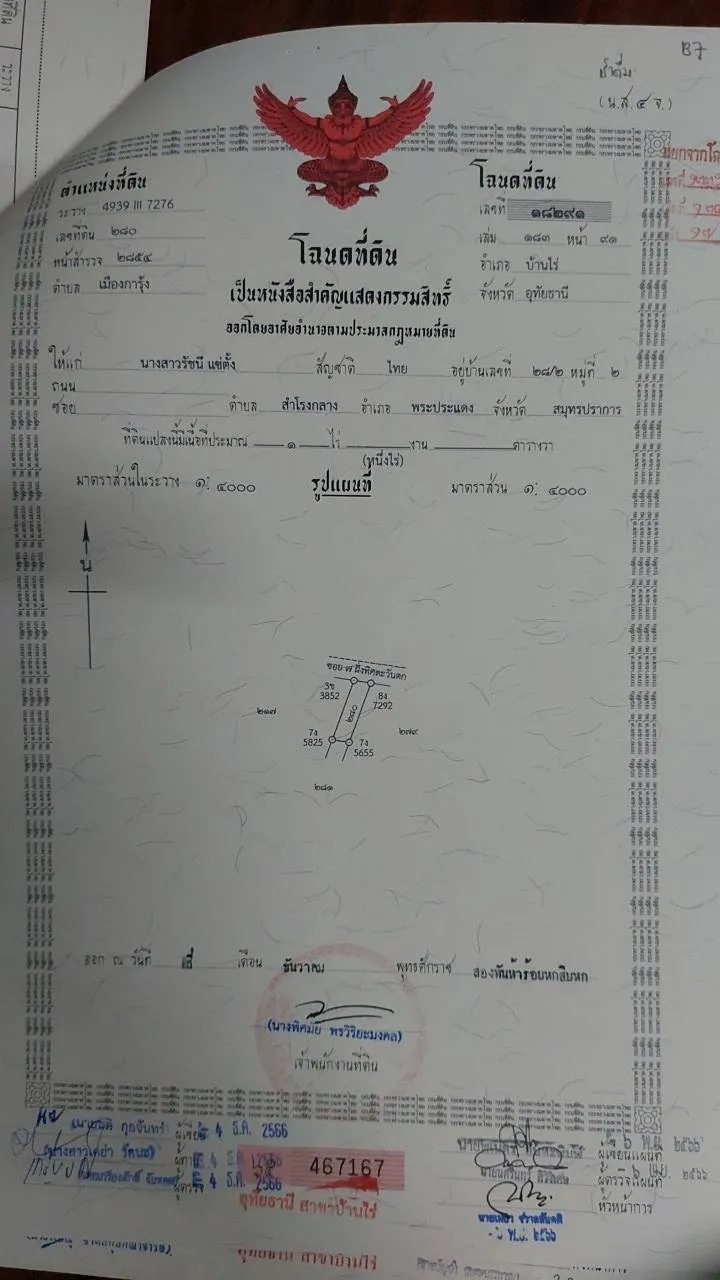 B7
(น.ส.๔ จ.)
ตำแหน่งที่ดิน
ระวาง 4939 III 7276
เลขที่ดิน ๒๘๐
หน้าสำรวจ ๒๘๕๔
ตำบล เมืองการุ้ง
โฉนดที่ดิน
เลขที่ ๑๘๒๙๑
เล่ม ๑๘๓ หน้า ๙๑
อำเภอ บ้านไร่
จังหวัด อุทัยธานี
โฉนดที่ดิน
เป็นหนังสือสำคัญแสดงกรรมสิทธิ์
ออกโดยอาศัยอำนาจตามประมวลกฎหมายที่ดิน
ให้แก่ นางสาวรัชนี แซ่ตั้ง สัญชาติ ไทย อยู่บ้านเลขที่ ๒๘/๒ หมู่ที่ ๒
ถนน
ซอย ตำบล สำโรงกลาง อำเภอ พระประแดง จังหวัด สมุทรปราการ
ที่ดินแปลงนี้มีเนื้อที่ประมาณ ๑ ไร่ งาน ตารางวา
(หนึ่งไร่)
มาตราส่วนในระวาง ๑: ๔๐๐๐ รูปแผนที่ มาตราส่วน ๑: ๔๐๐๐
น
ซอย ๗ ฝั่งทิศตะวันตก
3ข 3852
8ง 7292
๒๑๗
๒๘๐
๒๗๙
7ง 5825
7ง 5655
๒๘๑
ออก ณ วันที่ สี่ เดือน ธันวาคม พุทธศักราช สองพันห้าร้อยหกสิบหก
(นางพิศมัย พรวิริยะมงคล)
เจ้าพนักงานที่ดิน
4 ธ.ค. 2566
4 ธ.ค. 2566
4 ธ.ค. 2566
467167
อุทัยธานี สาขาบ้านไร่
ผู้เขียนแผนที่
๖ พ.ย. ๒๕๖๖
ผู้ตรวจแผนที่
หัวหน้าการ
- ๖ พ.ย. ๒๕๖๖
อุทัยธานี สาขาบ้านไร่